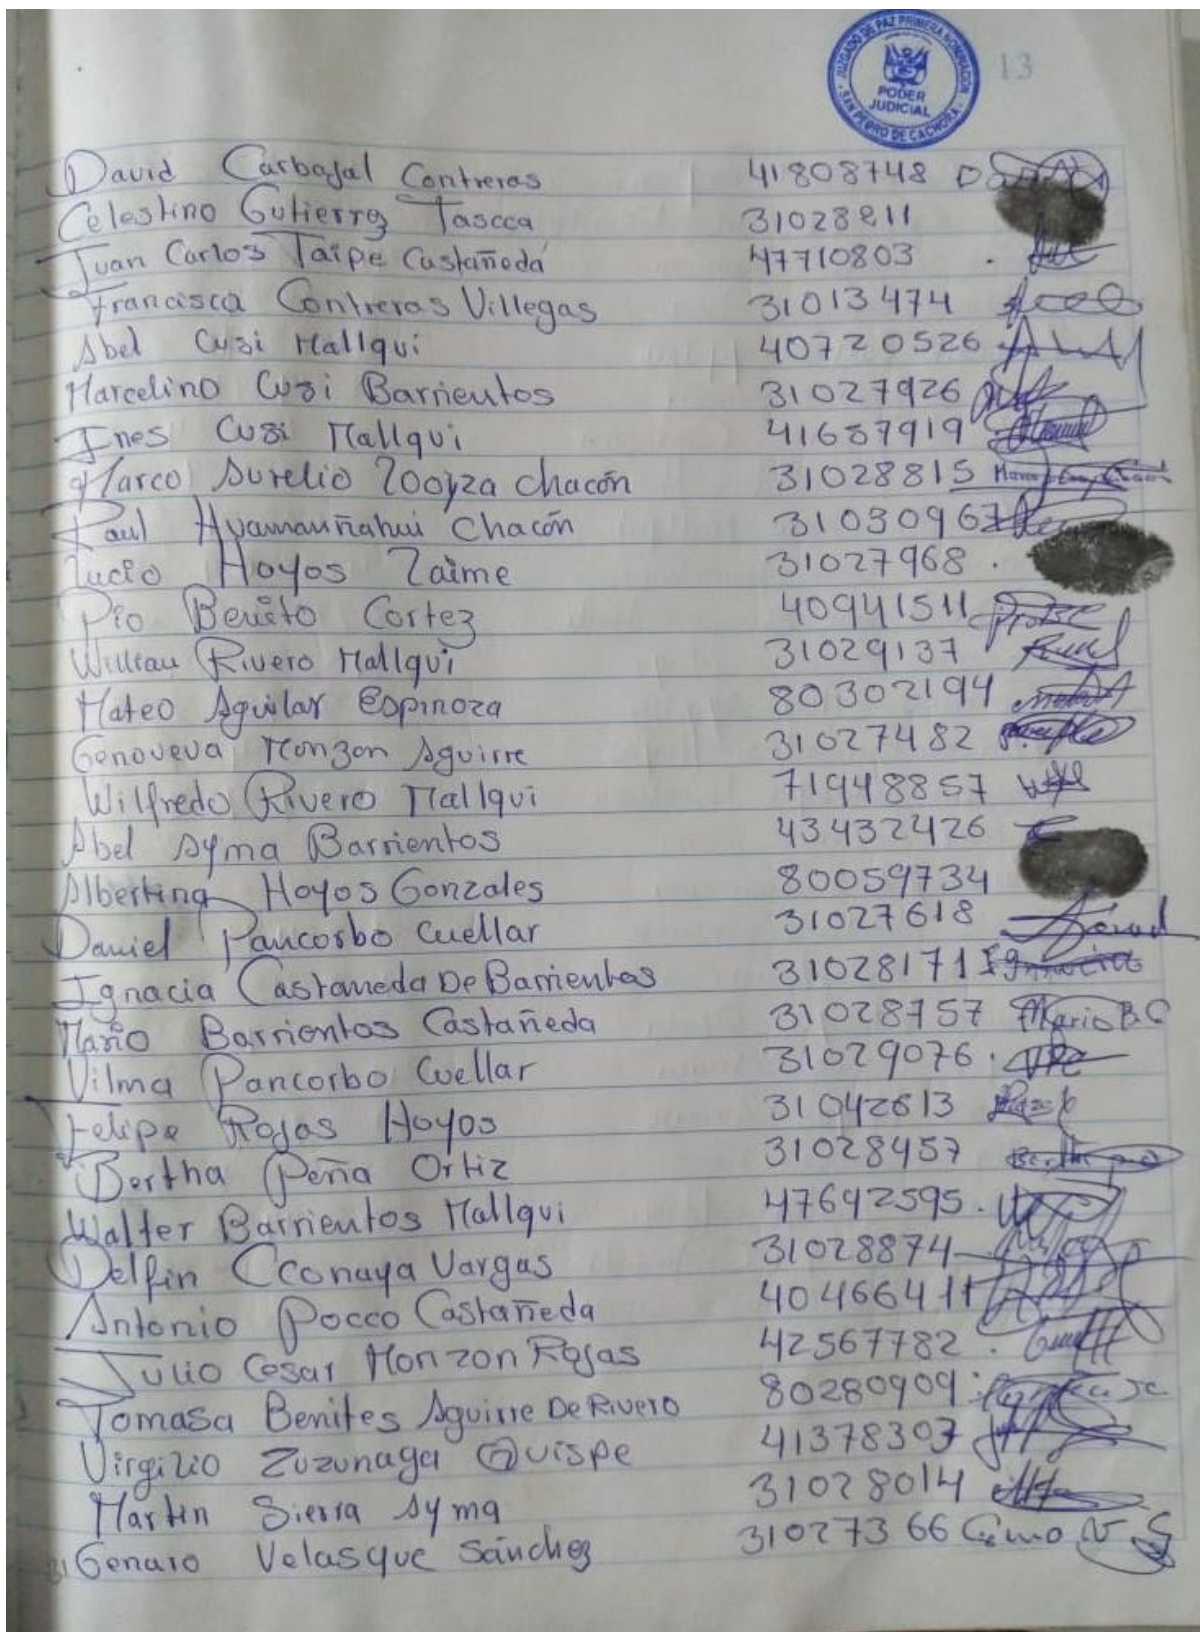 JUZGADO DE PAZ PRIMERA NOMINACION
PODER JUDICIAL
SAN PEDRO DE CACHORA
13
David Carbajal Contreras 41808748
Celestino Gutierrez Tascca 31028211
Juan Carlos Taipe Castañeda 47710803
Francisca Contreras Villegas 31013474
Abel Cusi Mallqui 40720526
Marcelino Cusi Barrientos 31027926
Ines Cusi Mallqui 41687919
Marco Aurelio Loayza Chacón 31028815
Raul Huamanñahui Chacón 31030967
Lucio Hoyos Laime 31027968
Pio Benito Cortez 40941511 Pio BC
William Rivero Mallqui 31029137
Mateo Aguilar Espinoza 80302194
Genoveva Monzon Aguirre 31027482
Wilfredo Rivero Mallqui 71948857
Abel Ayma Barrientos 43432426
Albertina Hoyos Gonzales 80059734
Daniel Pancorbo Cuellar 31027618
Ignacia Castaneda De Barrientos 31028171 Ignacia
Mario Barrientos Castañeda 31028757 Mario B.C
Vilma Pancorbo Cuellar 31029076
Felipe Rojas Hoyos 31042613
Bertha Peña Ortiz 31028457
Walter Barrientos Mallqui 47642595
Delfin Cconaya Vargas 31028874
Antonio Pocco Castañeda 40466411
Julio Cesar Monzon Rojas 42567782
Tomasa Benites Aguirre De Rivero 80280909
Virgilio Zuzunaga Quispe 41378303
Martin Sierra Ayma 31028014
31 Genaro Velasque Sánchez 31027366